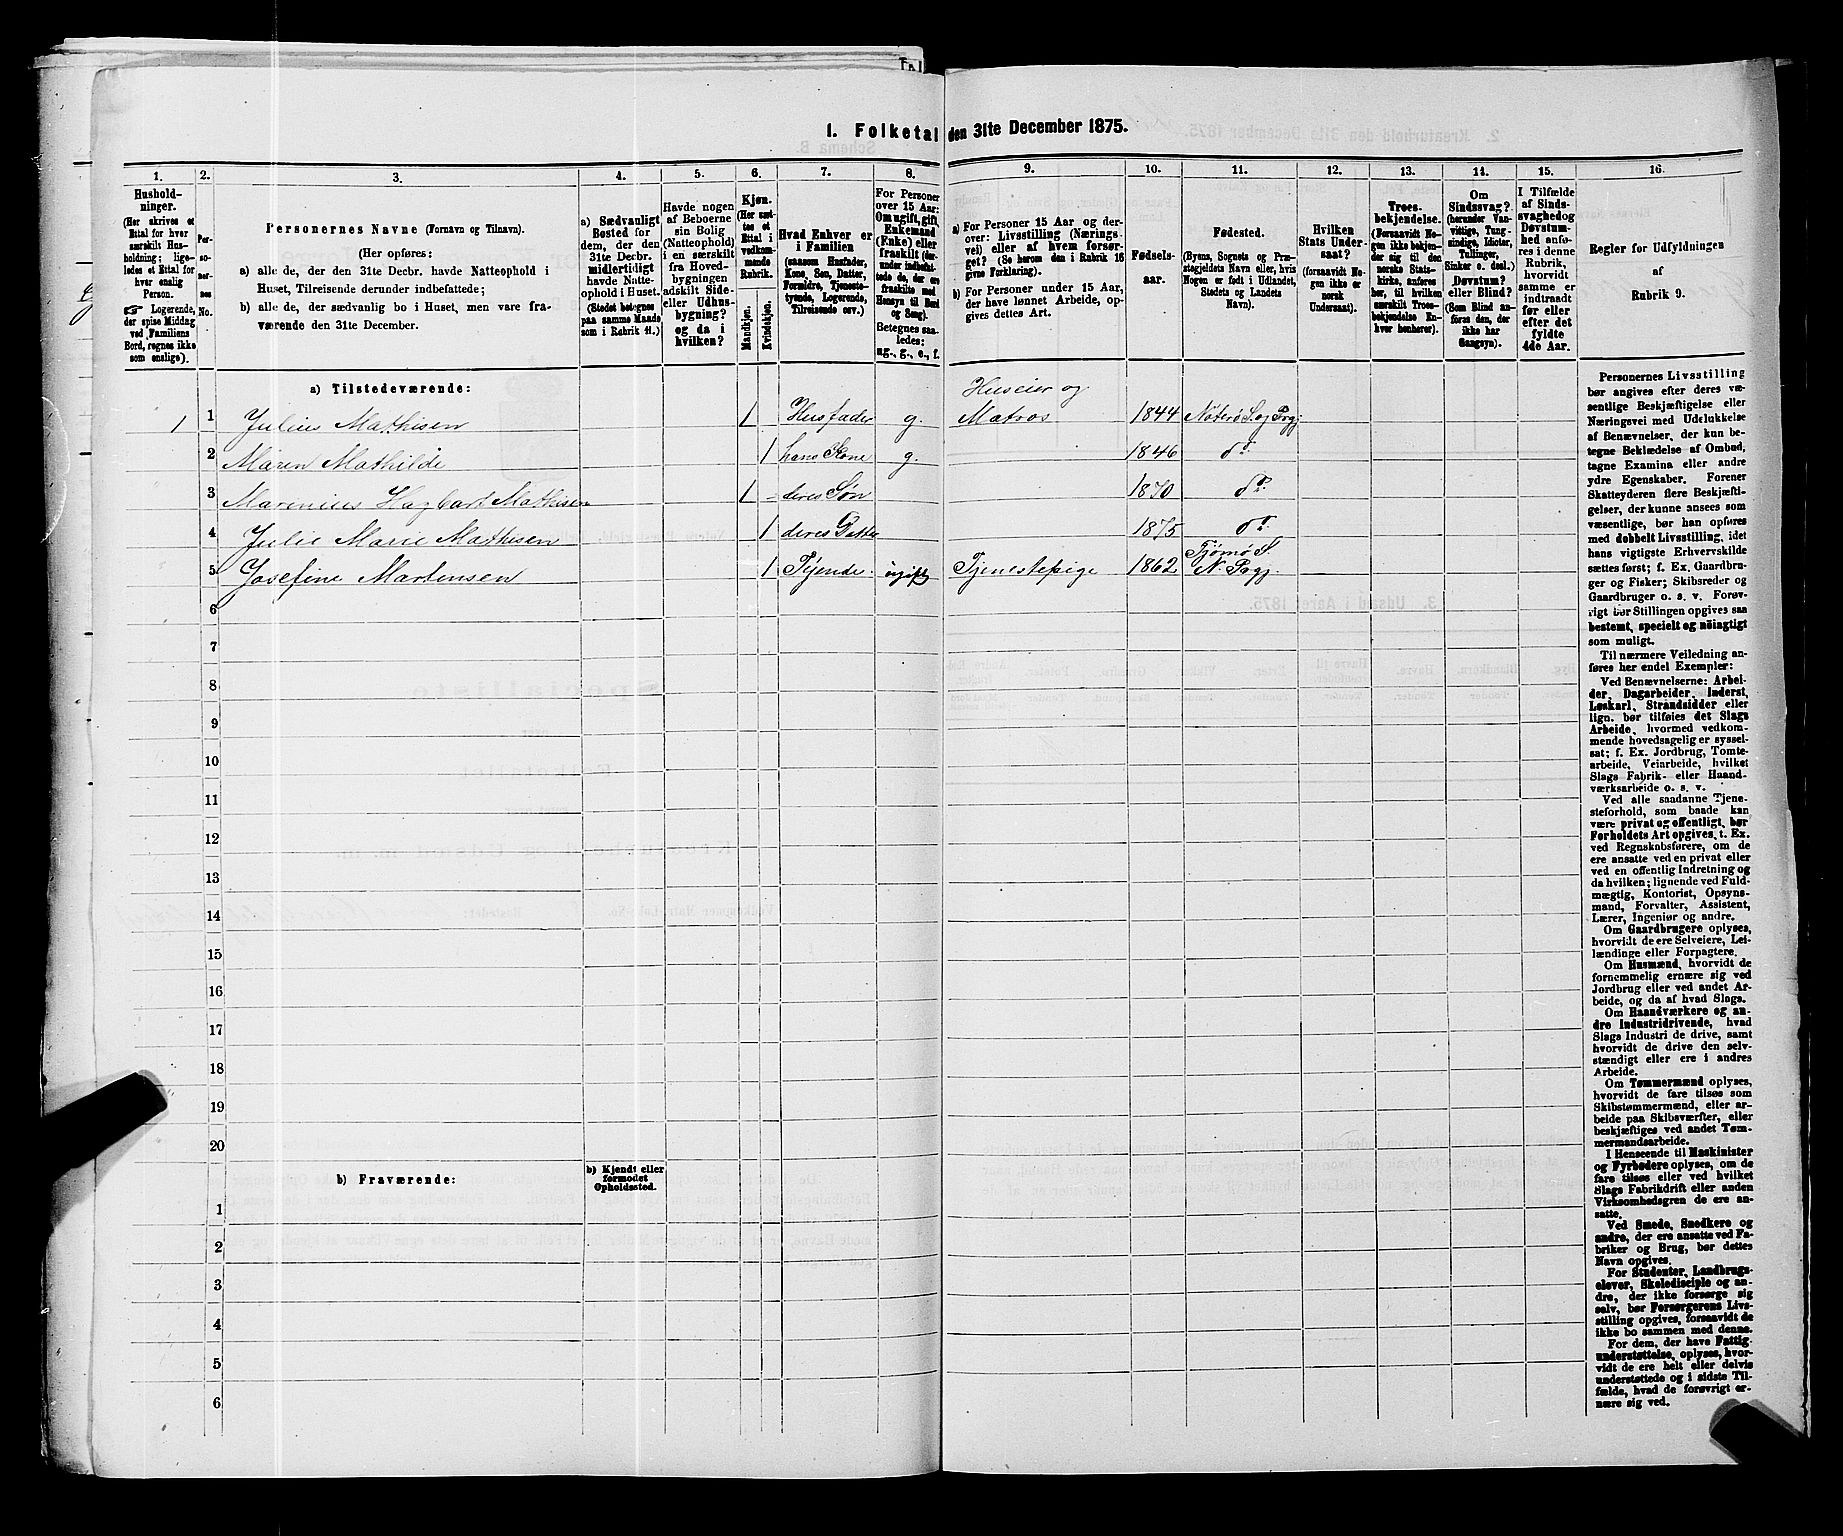 1. Folketal den 31te December 1875.
1.
2.
3.
4.
5.
6.
7.
8.
9.
10.
11.
12.
13.
14.
15.
16.
Hushold-
ninger.
(Her skrives et
Ettal for hver
særskilt Hus-
holdning; lige-
ledes et Ettal for
hver enslig
Person.
☞ Logerende,
der spise Middag
ved Familiens
Bord, regnes ikke
som enslige).
Per-
so-
ner-
nes
No.
Personernes Navne (Fornavn og Tilnavn).
(Her opføres:
a) alle de, der den 31te Decbr. havde Natteophold i
Huset, Tilreisende derunder indbefattede;
b) alle de, der sædvanlig bo i Huset, men vare fra-
værende den 31te December.
a) Sædvanligt
Bosted for
dem, der den
31te Decbr.
midlertidigt
havde Natte-
ophold i Huset.
(Stedet betegnes
paa samme Maade
som i Rubrik 11.)
Havde nogen
af Beboerne
sin Bolig
(Natteophold)
i en særskilt
fra Hoved-
bygningen
adskilt Side-
eller Udhus-
bygning?
og da i
hvilken?
Kjøn.
(Her sæt-
tes et
Ettal i
vedkom-
mende
Rubrik.
Mandkjøn.
Kvindekjøn.
Hvad Enhver er
i Familien
(saasom Husfader,
Kone, Søn, Datter,
Forældre, Tjeneste-
tyende, Logerende,
Tilreisende osv.)
For Personer
over 15 Aar:
Om ugift, gift,
Enkemand
(Enke) eller
fraskilt (der-
under indbefat-
tede de, der ere
fraskilte med
Hensyn til Bord
og Seng).
Betegnes saa-
ledes:
ug., g., e., f.
a) For Personer 15 Aar og der-
over: Livsstilling (Nærings-
vei) eller af hvem forsør-
get? (Se herom den i Rubrik 16
givne Forklaring).
b) For Personer under 15 Aar,
der have lønnet Arbeide, op-
gives dettes Art.
Fødsels-
aar.
Fødested.
(Byens, Sognets og Præ-
stegjeldets Navn eller, hvis
Nogen er født i Udlandet,
Stedets og Landets
Navn).
Hvilken
Stats Under-
saat?
(forsaavidt No-
gen ikke er
norsk
Undersaat).
Troes-
bekjendelse.
(Forsaavidt No-
gen ikke bekjen-
der sig til den
norske Stats-
kirke, anføres
her, til hvilken
særskilt Troes-
bekjendelse En-
hver henhører).
Om
Sindssvag?
(herunder Van-
vittige, Tung-
sindige, Idioter,
Tullinger,
Sinker o. desl.)
Døvstum?
eller Blind?
(Som Blind an-
føres den, der
ikke har
Gangsyn).
I Tilfælde
af Sinds-
svaghed og
Døvstum-
hed anfø-
res i denne
Rubrik,
hvorvidt
samme er
indtraadt
før eller
efter det
fyldte
4de Aar.
Regler for Udfyldningen
af
Rubrik 9.
a) Tilstedeværende:
Huseier og
1 1 Julius Mathisen 1 Husfader g. Matros 1844 Nøterø S. og Prgj
2 Maren Mathilde 1 hans Kone g. 1846 do.
3 Marinius Hagbart Mathisen 1 deres Søn 1870 do.
4 Julie Marie Mathisen 1 deres Datter 1875 do.
Tjømø S.
5 Josefine Martensen 1 Tjende. ugift Tjenestepige 1862 N. Prgj.
6
7
8
9
10
11
12
13
14
15
16
17
18
19
20
b) Fraværende:
b) Kjendt eller
formodet
Opholdssted.
1
2
3
4
5
6
Personernes Livsstilling
bør angives efter deres væ-
sentlige Beskjæftigelse eller
Næringsvei med Udelukkelse
af Benævnelser, der kun be-
tegne Beklædelse af Ombud,
tagne Examina eller andre
ydre Egenskaber. Forener
Skatteyderen flere Beskjæfti-
gelser, der kunne ansees som
væsentlige, bør han opføres
med dobbelt Livsstilling, idet
hans vigtigste Erhvervskilde
sættes først; f. Ex. Gaardbru-
ger og Fisker; Skibsreder og
Gaardbruger o. s. v. Forøv-
rigt bør Stillingen opgives saa
bestemt, specielt og nöiagtigt
som muligt.
Til nærmere Veiledning an-
føres her endel Exempler:
Ved Benævnelserne: Arbei-
der, Dagarbeider, Inderst,
Løskarl, Strandsidder eller
lign. bør tilføies det Slags
Arbeide, hvormed vedkom-
mende hovedsagelig er syssel-
sat; f. Ex. Jordbrug, Tomte-
arbeide, Veiarbeide, hvilket
Slags Fabrik- eller Haand-
værksarbeide o. s. v.
Ved alle saadanne Tjene-
steforhold, som baade kan
være privat og offentligt, bør
Forholdets Art opgives, t. Ex.
ved Regnskabsførere, om de
ere ansatte ved en privat eller
ved en offentlig Indretning og
da hvilken; lignende ved Fuld-
mægtig, Kontorist, Opsyns-
mand, Forvalter, Assistent,
Lærer, Ingeniør og andre.
Om Gaardbrugere oplyses,
hvorvidt de ere Selveiere, Lei-
lændinge eller Forpagtere.
Om Husmænd, hvorvidt de
fornemmelig ernære sig ved
Jordbrug eller ved andet Ar-
beide, og da af hvad Slags.
Om Haandværkere og an-
dre Industridrivende, hvad
Slags Industri de drive, samt
hvorvidt de drive den selv-
stændigt eller ere i andres
Arbeide.
Om Tømmermænd oplyses,
hvorvidt de fare tilsøs som
Skibstømmermænd, eller ar-
beide paa Skibsværfter, eller
beskjæftiges ved andet Tøm-
mermandsarbeide.
I Henseende til Maskinister
og Fyrbødere oplyses, om de
fare tilsøs eller ved hvilket
Slags Fabrikdrift eller anden
Virksomhedsgren de ere an-
satte.
Ved Smede, Snedkere og
andre, der ere ansatte ved Fa-
briker og Brug, bør dettes
Navn opgives.
For Studenter, Landbrugs-
elever, Skoledisciple og an-
dre, der ikke forsørge sig
selv, bør Forsørgerens Livs-
stilling opgives, forsaavidt de
ikke bo sammen med denne.
For dem, der have Fattig-
understøttelse, oplyses, hvor-
vidt de ere helt eller delvis
understøttede og i sidste Til-
fælde, hvad de forøvrigt er-
nære sig ved.